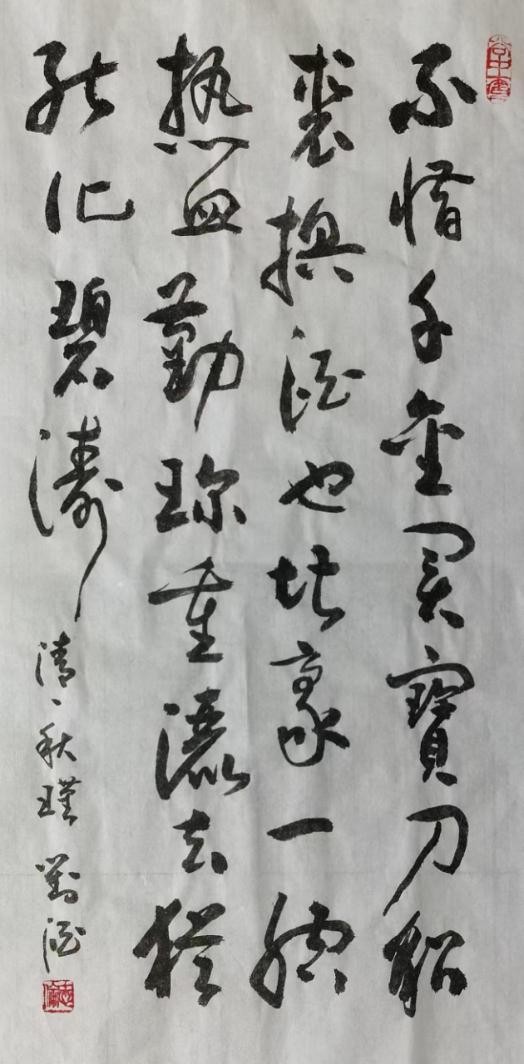 不惜千金買寶刀貂
裘換酒也堪豪一腔
热血勤珍重灑去猶
能化碧濤
清、秋瑾 對酒